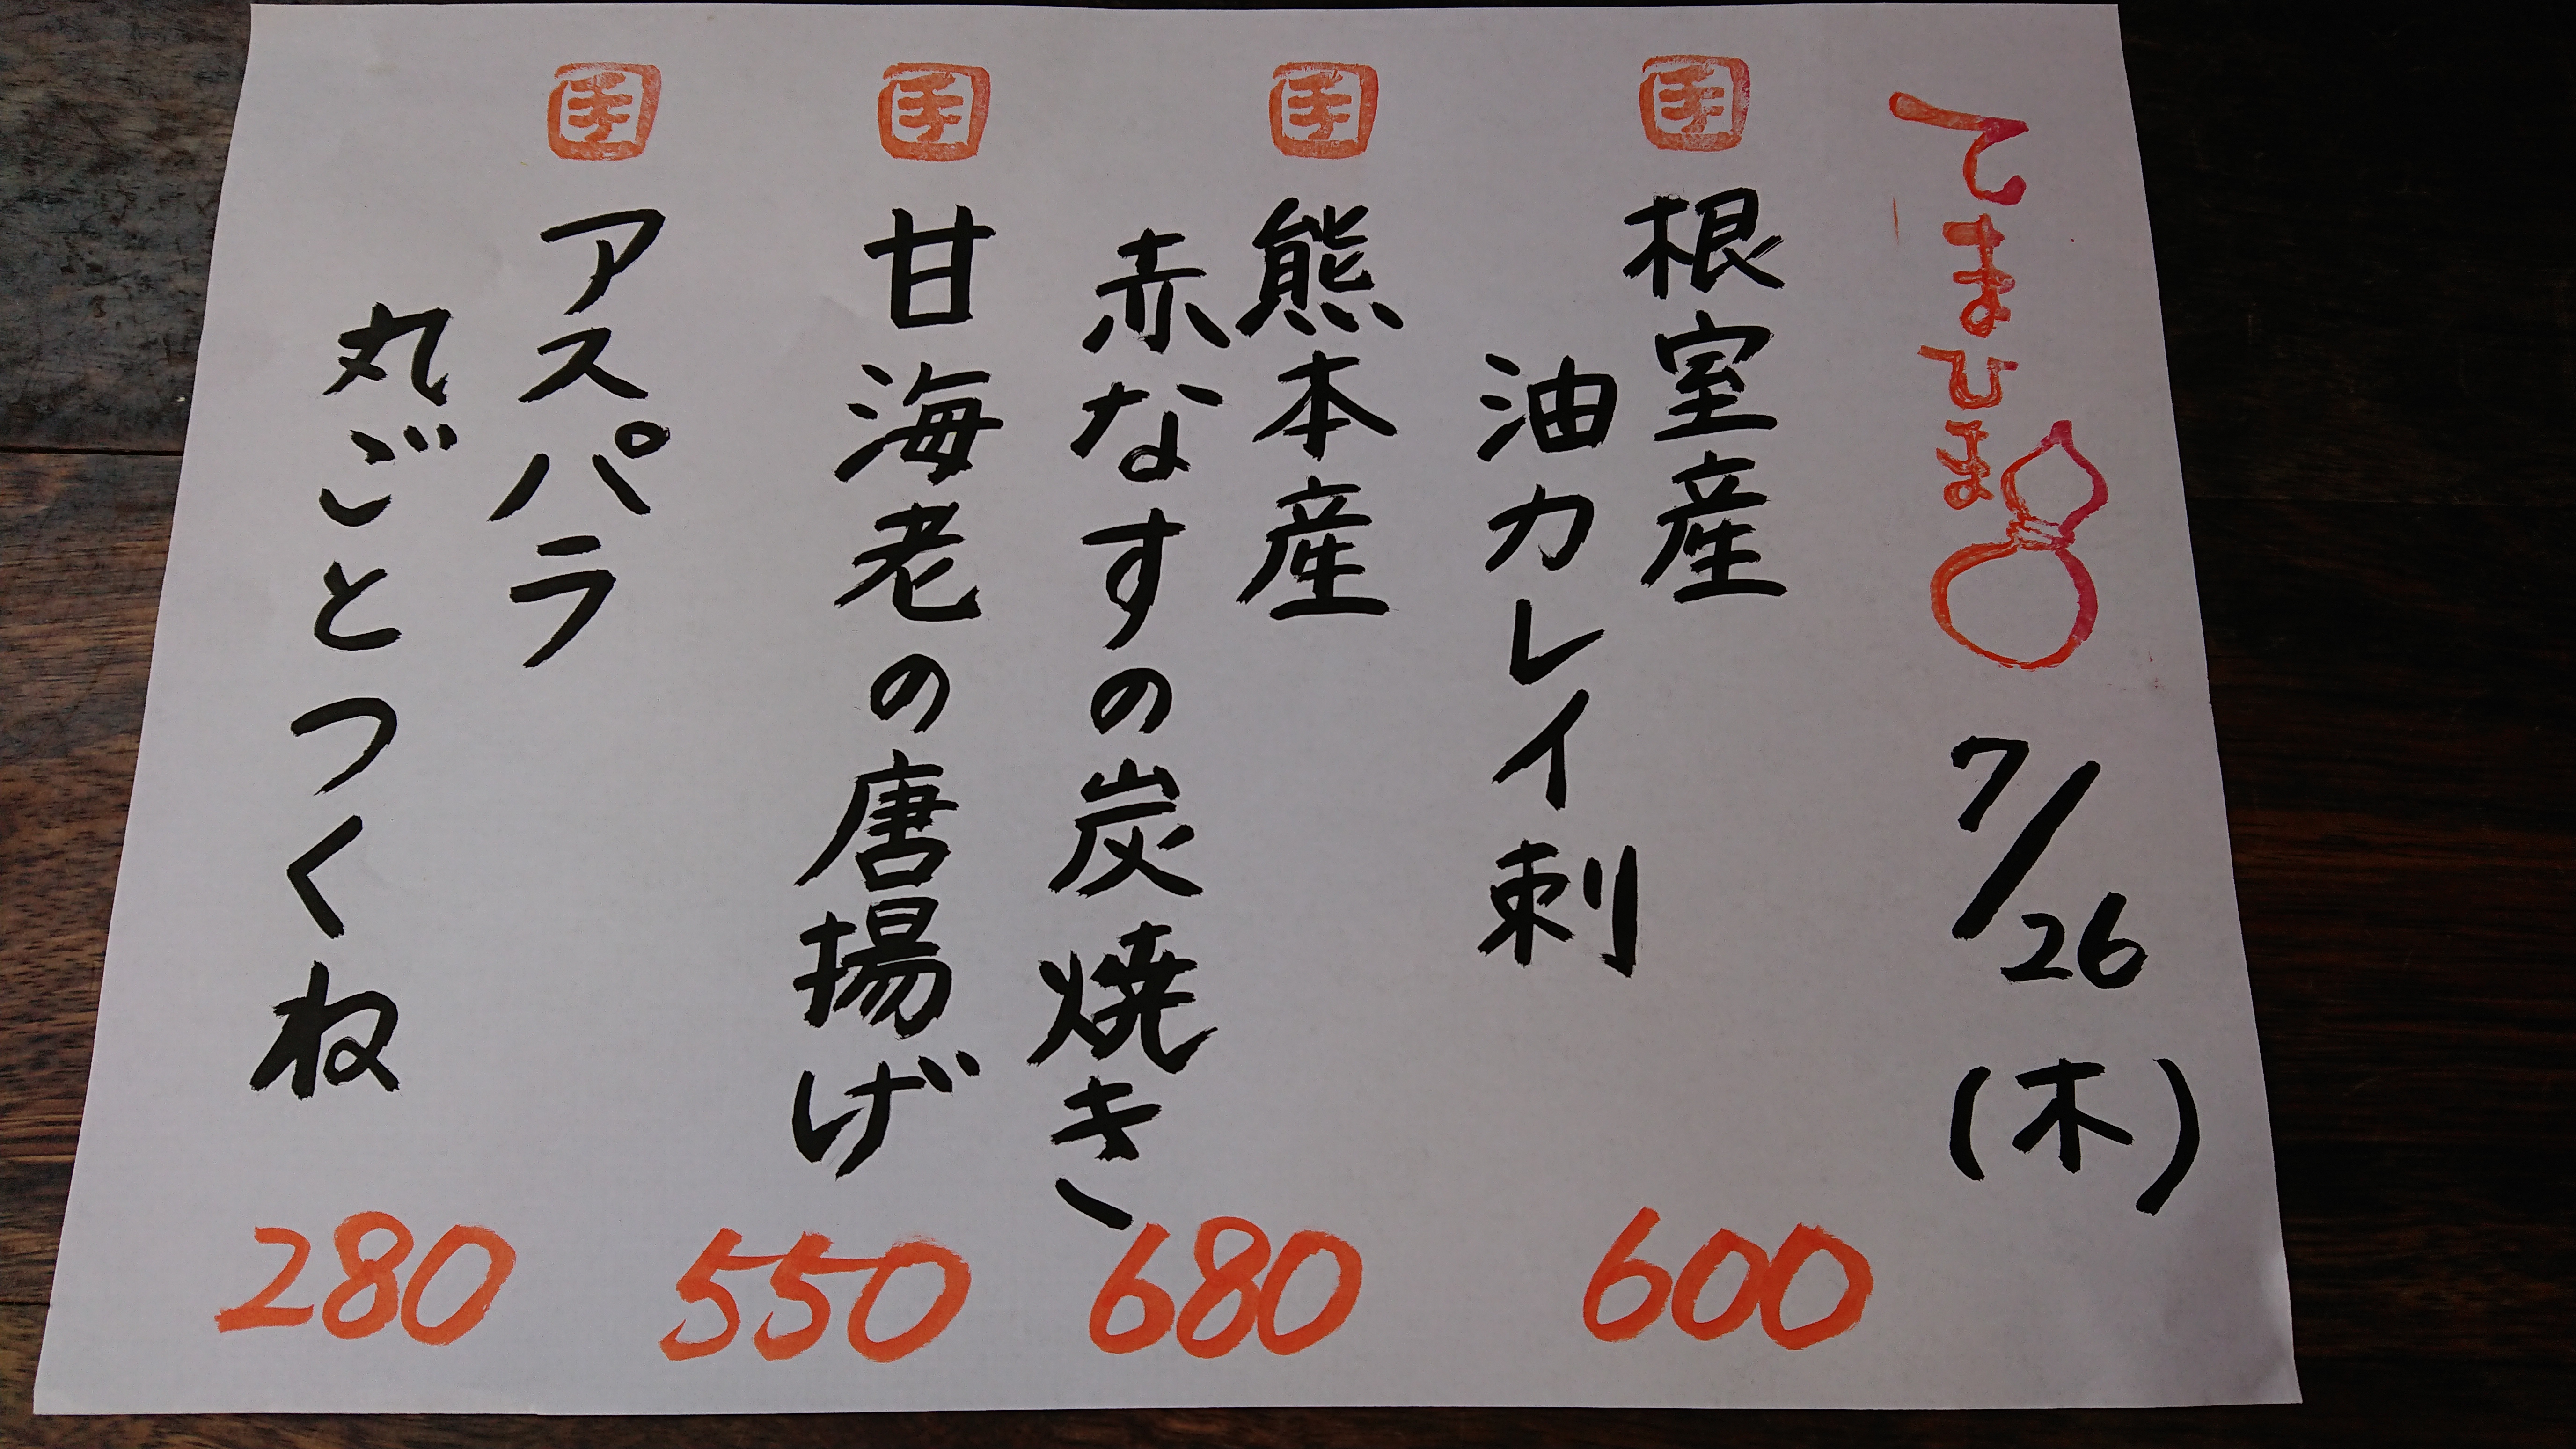 てまひま
7/26(木)
手
根室産
油カレイ刺
600
手
熊本産
赤なすの炭焼き
680
手
甘海老の唐揚げ
550
手
アスパラ
丸ごとつくね
280